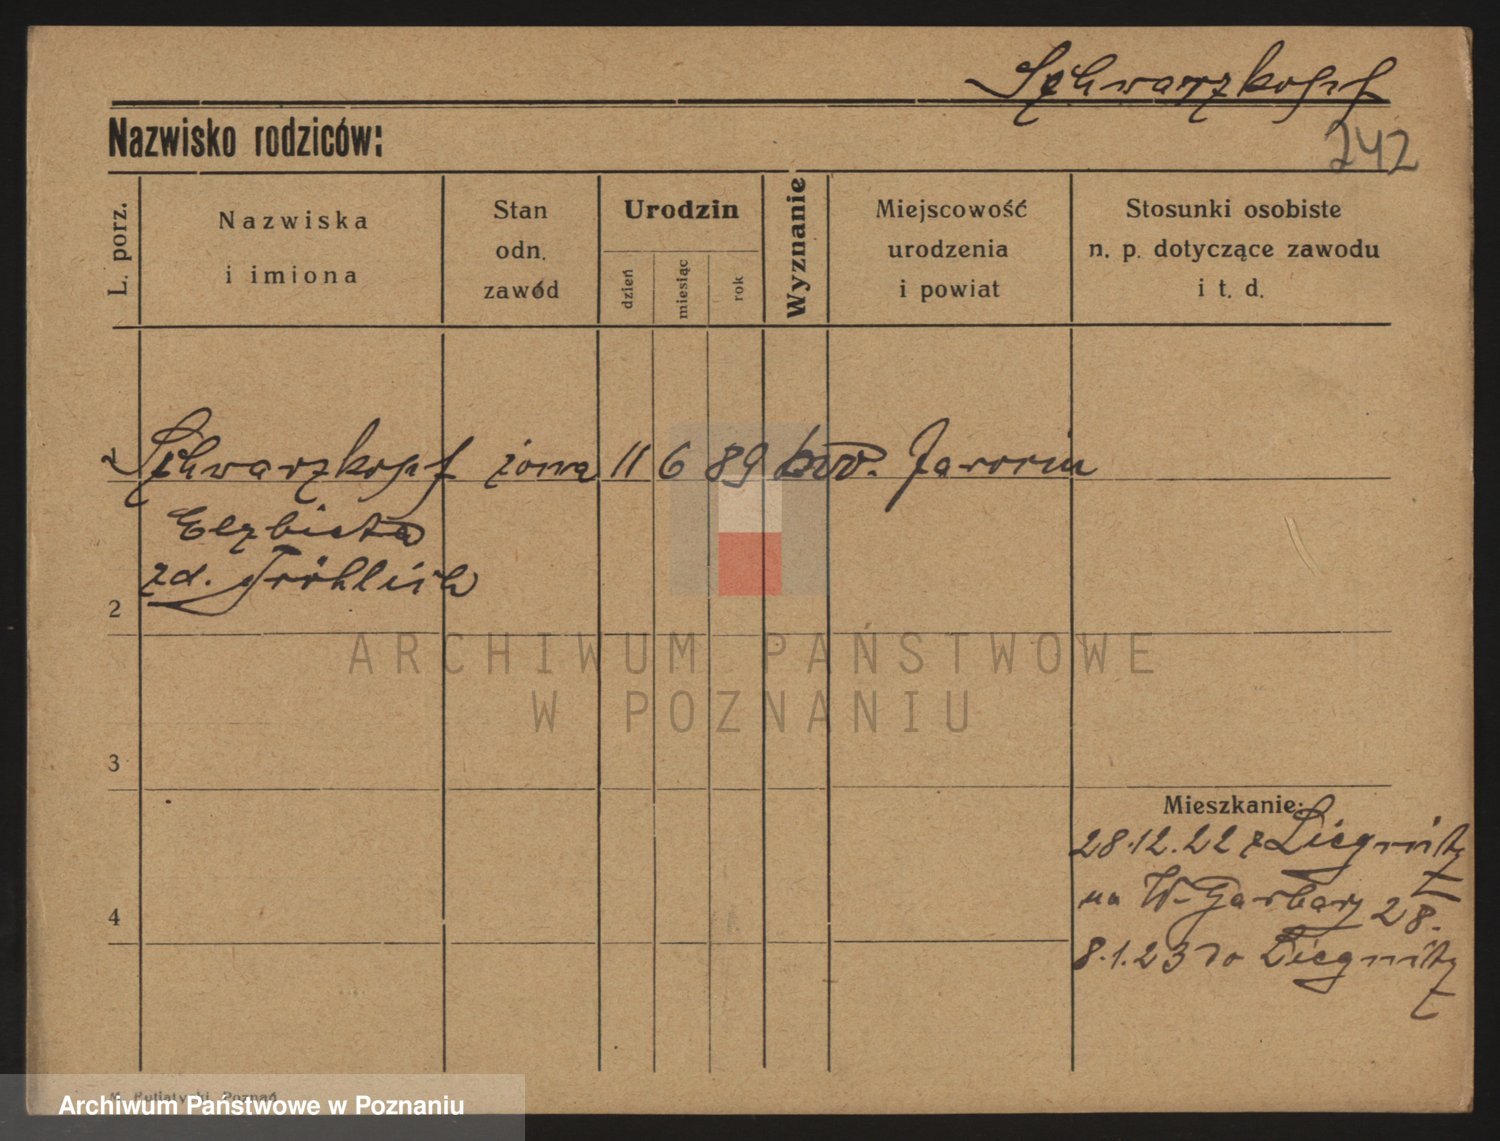 Schwarzkopf
Nazwisko rodziców:
242
L. porz.
Nazwiska
i imiona
Stan
odn.
zawód
Urodzin
dzień
miesiąc
rok
Wyznanie
Miejscowość
urodzenia
i powiat
Stosunki osobiste
n. p. dotyczące zawodu
i t. d.
Schwarzkopf żona 11 6 89 Jarocin
Elzbieta
zd. Fröhlich
2
ARCHIWUM PAŃSTWOWE
W POZNANIU
3
Mieszkanie:
28.12.22 z Liegnitz
na W-Garbary 28.
4
8.1.23 do Liegnitz
Poznań
Archiwum Państwowe w Poznaniu